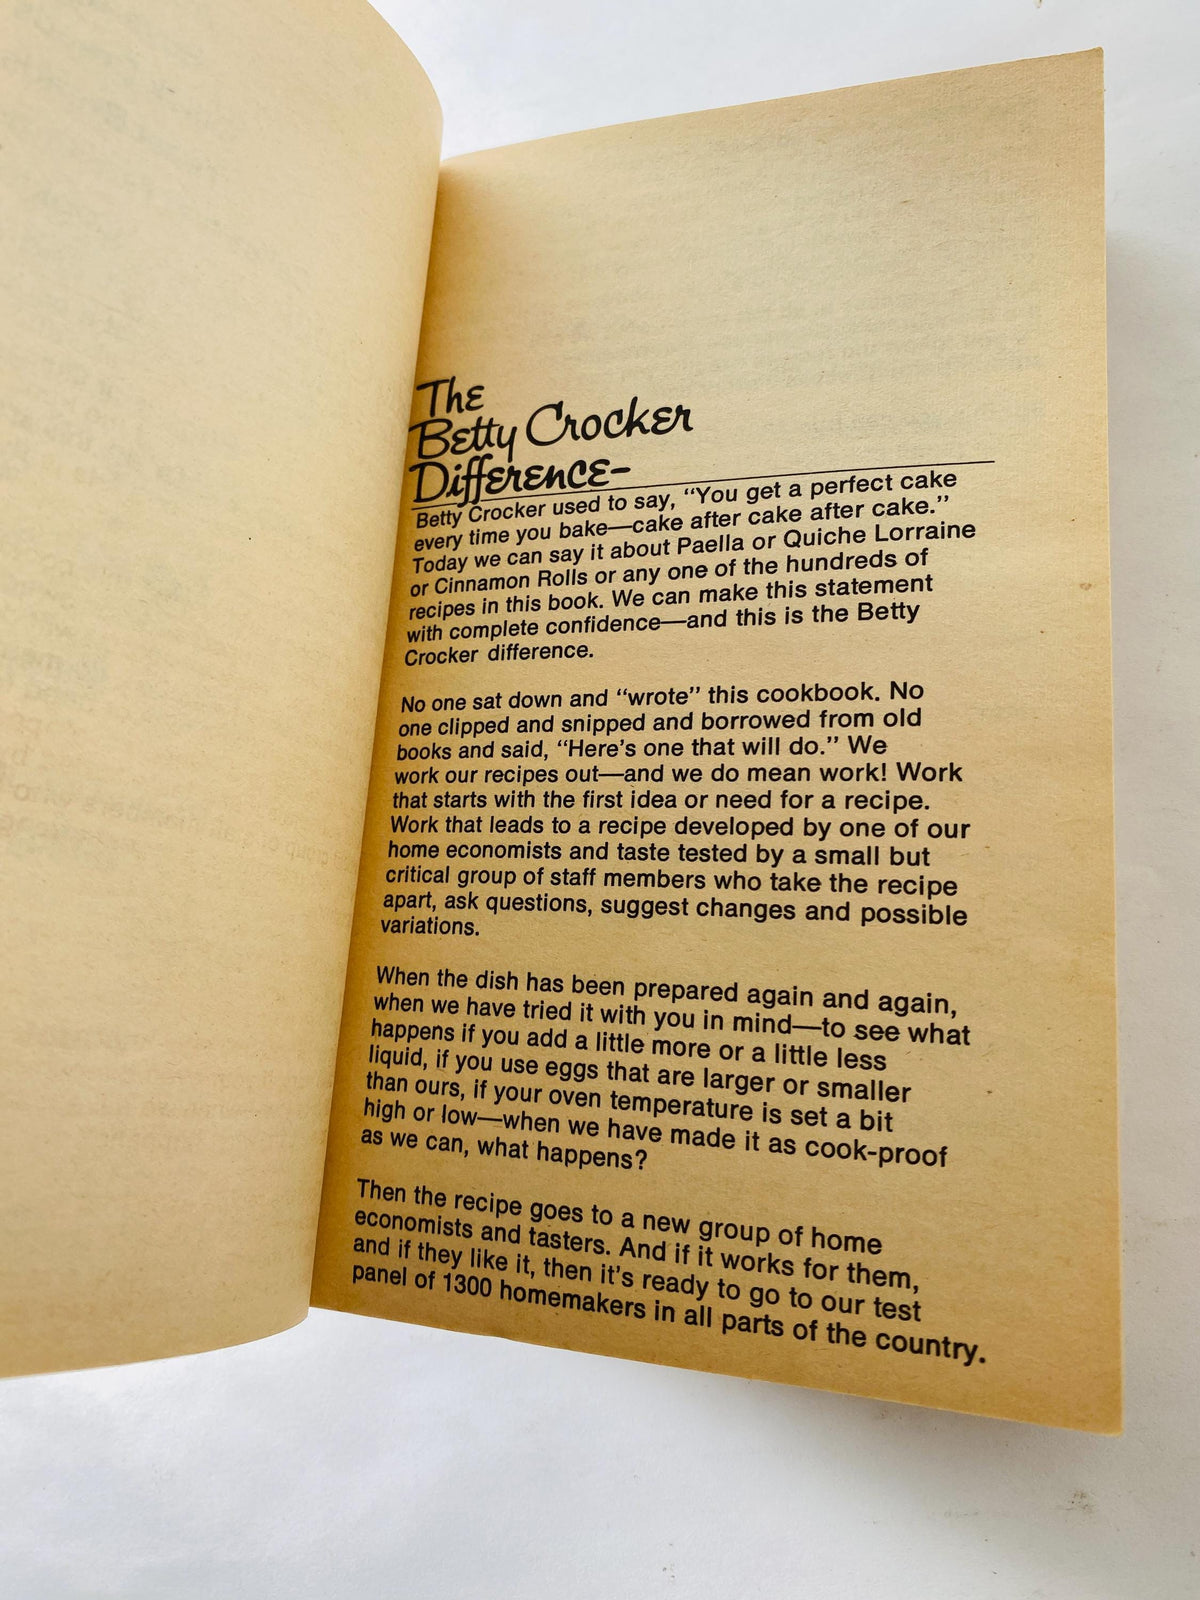 The
Betty Crocker
Difference-
Betty Crocker used to say, “You get a perfect cake
every time you bake—cake after cake after cake.”
Today we can say it about Paella or Quiche Lorraine
or Cinnamon Rolls or any one of the hundreds of
recipes in this book. We can make this statement
with complete confidence—and this is the Betty
Crocker difference.
No one sat down and “wrote” this cookbook. No
one clipped and snipped and borrowed from old
books and said, “Here’s one that will do.” We
work our recipes out—and we do mean work! Work
that starts with the first idea or need for a recipe.
Work that leads to a recipe developed by one of our
home economists and taste tested by a small but
critical group of staff members who take the recipe
apart, ask questions, suggest changes and possible
variations.
When the dish has been prepared again and again,
when we have tried it with you in mind—to see what
happens if you add a little more or a little less
liquid, if you use eggs that are larger or smaller
than ours, if your oven temperature is set a bit
high or low—when we have made it as cook-proof
as we can, what happens?
Then the recipe goes to a new group of home
economists and tasters. And if it works for them,
and if they like it, then it’s ready to go to our test
panel of 1300 homemakers in all parts of the country.